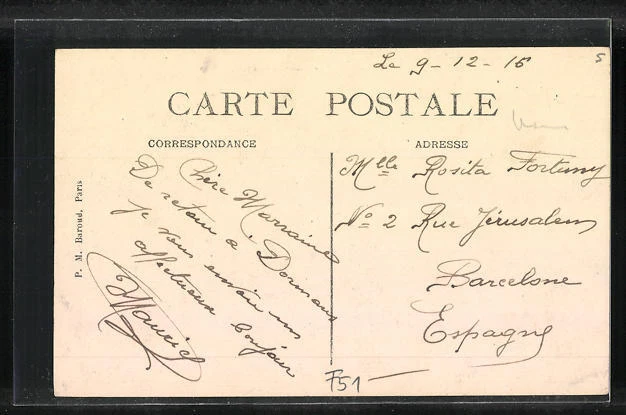 Le 9-12-15
CARTE POSTALE
CORRESPONDANCE
Chère Marraine
De retour a Dormans
je vous envoie un
affectueux bonjour
Maurice
P. M. Baroud, Paris
ADRESSE
Mlle Rosita Fortuny
No 2 Rue Jérusalem
Barcelone
Espagne
F51-